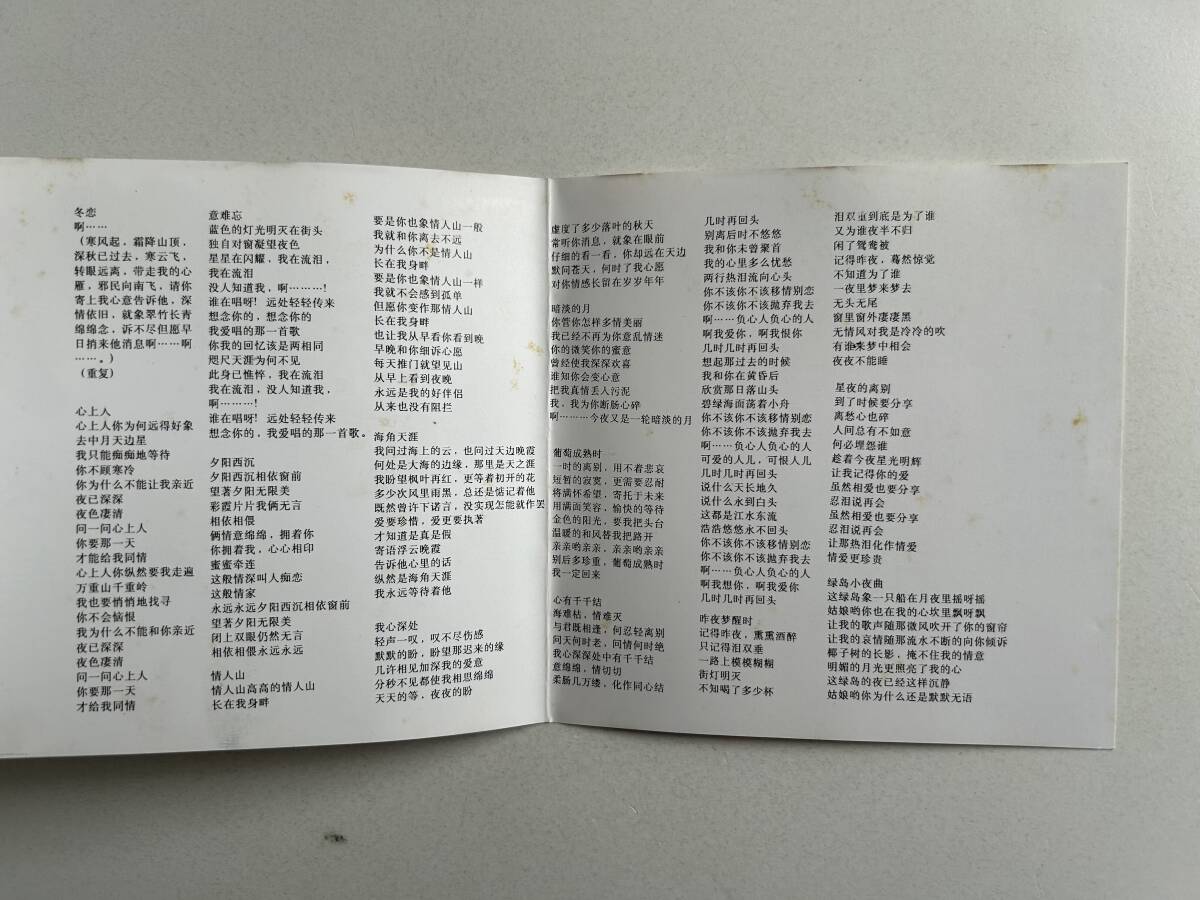 冬恋
啊……
(寒风起，霜降山顶，
深秋已过去，寒云飞，
转眼远离，带走我的心
雁，邪民向南飞，请你
寄上我心意告诉他，深
情依旧，就象翠竹长青
绵绵念，诉不尽但愿早
日捎来他消息啊……啊
……。)
(重复)
心上人
心上人你为何远得好象
去中月天边星
我只能痴痴地等待
你不顾寒冷
你为什么不能让我亲近
夜已深深
夜色凄清
问一问心上人
你要那一天
才能给我同情
心上人你纵然要我走遍
万重山千重岭
我也要悄悄地找寻
你不会恼恨
我为什么不能和你亲近
夜已深深
夜色凄清
问一问心上人
你要那一天
才给我同情
意难忘
蓝色的灯光明灭在街头
独自对窗凝望夜色
星星在闪耀，我在流泪，
我在流泪
没人知道我，啊………!
谁在唱呀! 远处轻轻传来
想念你的，想念你的
我爱唱的那一首歌
你我的回忆该是两相同
咫尺天涯为何不见
此身已憔悴，我在流泪
我在流泪，没人知道我，
啊………!
谁在唱呀! 远处轻轻传来
想念你的，我爱唱的那一首歌。
夕阳西沉
夕阳西沉相依窗前
望著夕阳无限美
彩霞片片我俩无言
相依相偎
俩情意绵绵，拥着你
你拥着我，心心相印
蜜蜜牵连
这般情深叫人痴恋
这般情家
永远永远夕阳西沉相依窗前
望著夕阳无限美
闭上双眼仍然无言
相依相偎永远永远
情人山
情人山高高的情人山
长在我身畔
要是你也象情人山一般
我就和你离去不远
为什么你不是情人山
长在我身畔
要是你也象情人山一样
我就不会感到孤单
但愿你变作那情人山
长在我身畔
也让我从早看你看到晚
早晚和你细诉心愿
每天推门就望见山
从早上看到夜晚
永远是我的好伴侣
从来也没有阻拦
海角天涯
我问过海上的云，也问过天边晚霞
何处是大海的边缘，那里是天之涯
我盼望枫叶再红，更等着初开的花
多少次风里雨里，总还是惦记着他
既然曾许下诺言，没实现怎能就作罢
爱要珍惜，爱更要执著
才知道是真是假
寄语浮云晚霞
告诉他心里的话
纵然是海角天涯
我永远等待着他
我心深处
轻声一叹，叹不尽伤感
默默的盼，盼望那迟来的缘
几许相见加深我的爱意
分秒不见都使我相思绵绵
天天的等，夜夜的盼
虚度了多少落叶的秋天
常听你消息，就象在眼前
仔细的看一看，你却远在天边
默问苍天，何时了我心愿
对你情感长留在岁岁年年
暗淡的月
你管你怎样多情美丽
我已经不再为你意乱情迷
你的微笑你的蜜意
曾经使我深深欢喜
谁知你会变心意
把我真情丢人污泥
我，我为你断肠心碎
啊………今夜又是一轮暗淡的月
葡萄成熟时
一时的离别，用不着悲哀
短暂的寂寞，更需要忍耐
将满怀希望，寄托于未来
用满面笑容，愉快的等待
金色的阳光，要我把头台
温暖的和风替我把路开
亲亲哟亲亲，亲亲哟亲亲
别后多珍重，葡萄成熟时
我一定回来
心有千千结
海难枯，情难灭
与君既相逢，何忍轻离别
问天何时老，问情何时绝
我心深深处中有千千结
意绵绵，情切切
柔肠几万缕，化作同心结
几时再回头
别离后时不悠悠
我和你未曾聚首
我的心里多么忧愁
两行热泪流向心头
你不该你不该移情别恋
你不该你不该抛弃我去
啊……负心人负心的人
啊我爱你，啊我恨你
几时几时再回头
想起那过去的时候
我和你在黄昏后
欣赏那日落山头
碧绿海面荡着小舟
你不该你不该移情别恋
你不该你不该抛弃我去
啊……负心人负心的人
可爱的人儿，可恨人儿
几时几时再回头
说什么天长地久
说什么永到白头
这都是江水东流
浩浩悠悠永不回头
你不该你不该移情别恋
你不该你不该抛弃我去
啊……负心人负心的人
啊我想你，啊我爱你
几时几时再回头
昨夜梦醒时
记得昨夜，熏熏酒醉
只记得泪双垂
一路上模模糊糊
街灯明灭
不知喝了多少杯
泪双垂到底是为了谁
又为谁夜半不归
闲了鸳鸯被
记得昨夜，蓦然惊觉
不知道为了谁
一夜里梦来梦去
无头无尾
窗里窗外凄凄黑
无情风对我是冷冷的吹
有谁来梦中相会
夜夜不能睡
星夜的离别
到了时候要分享
离愁心也碎
人间总有不如意
何必埋怨谁
趁着今夜星光明辉
让我记得你的爱
虽然相爱也要分享
忍泪说再会
虽然相爱也要分享
忍泪说再会
让那热泪化作情爱
情爱更珍贵
绿岛小夜曲
这绿岛象一只船在月夜里摇呀摇
姑娘哟你也在我的心坎里飘呀飘
让我的歌声随那微风吹开了你的窗帘
让我的哀情随那流水不断的向你倾诉
椰子树的长影，掩不住我的情意
明媚的月光更照亮了我的心
这绿岛的夜已经这样沉静
姑娘哟你为什么还是默默无语